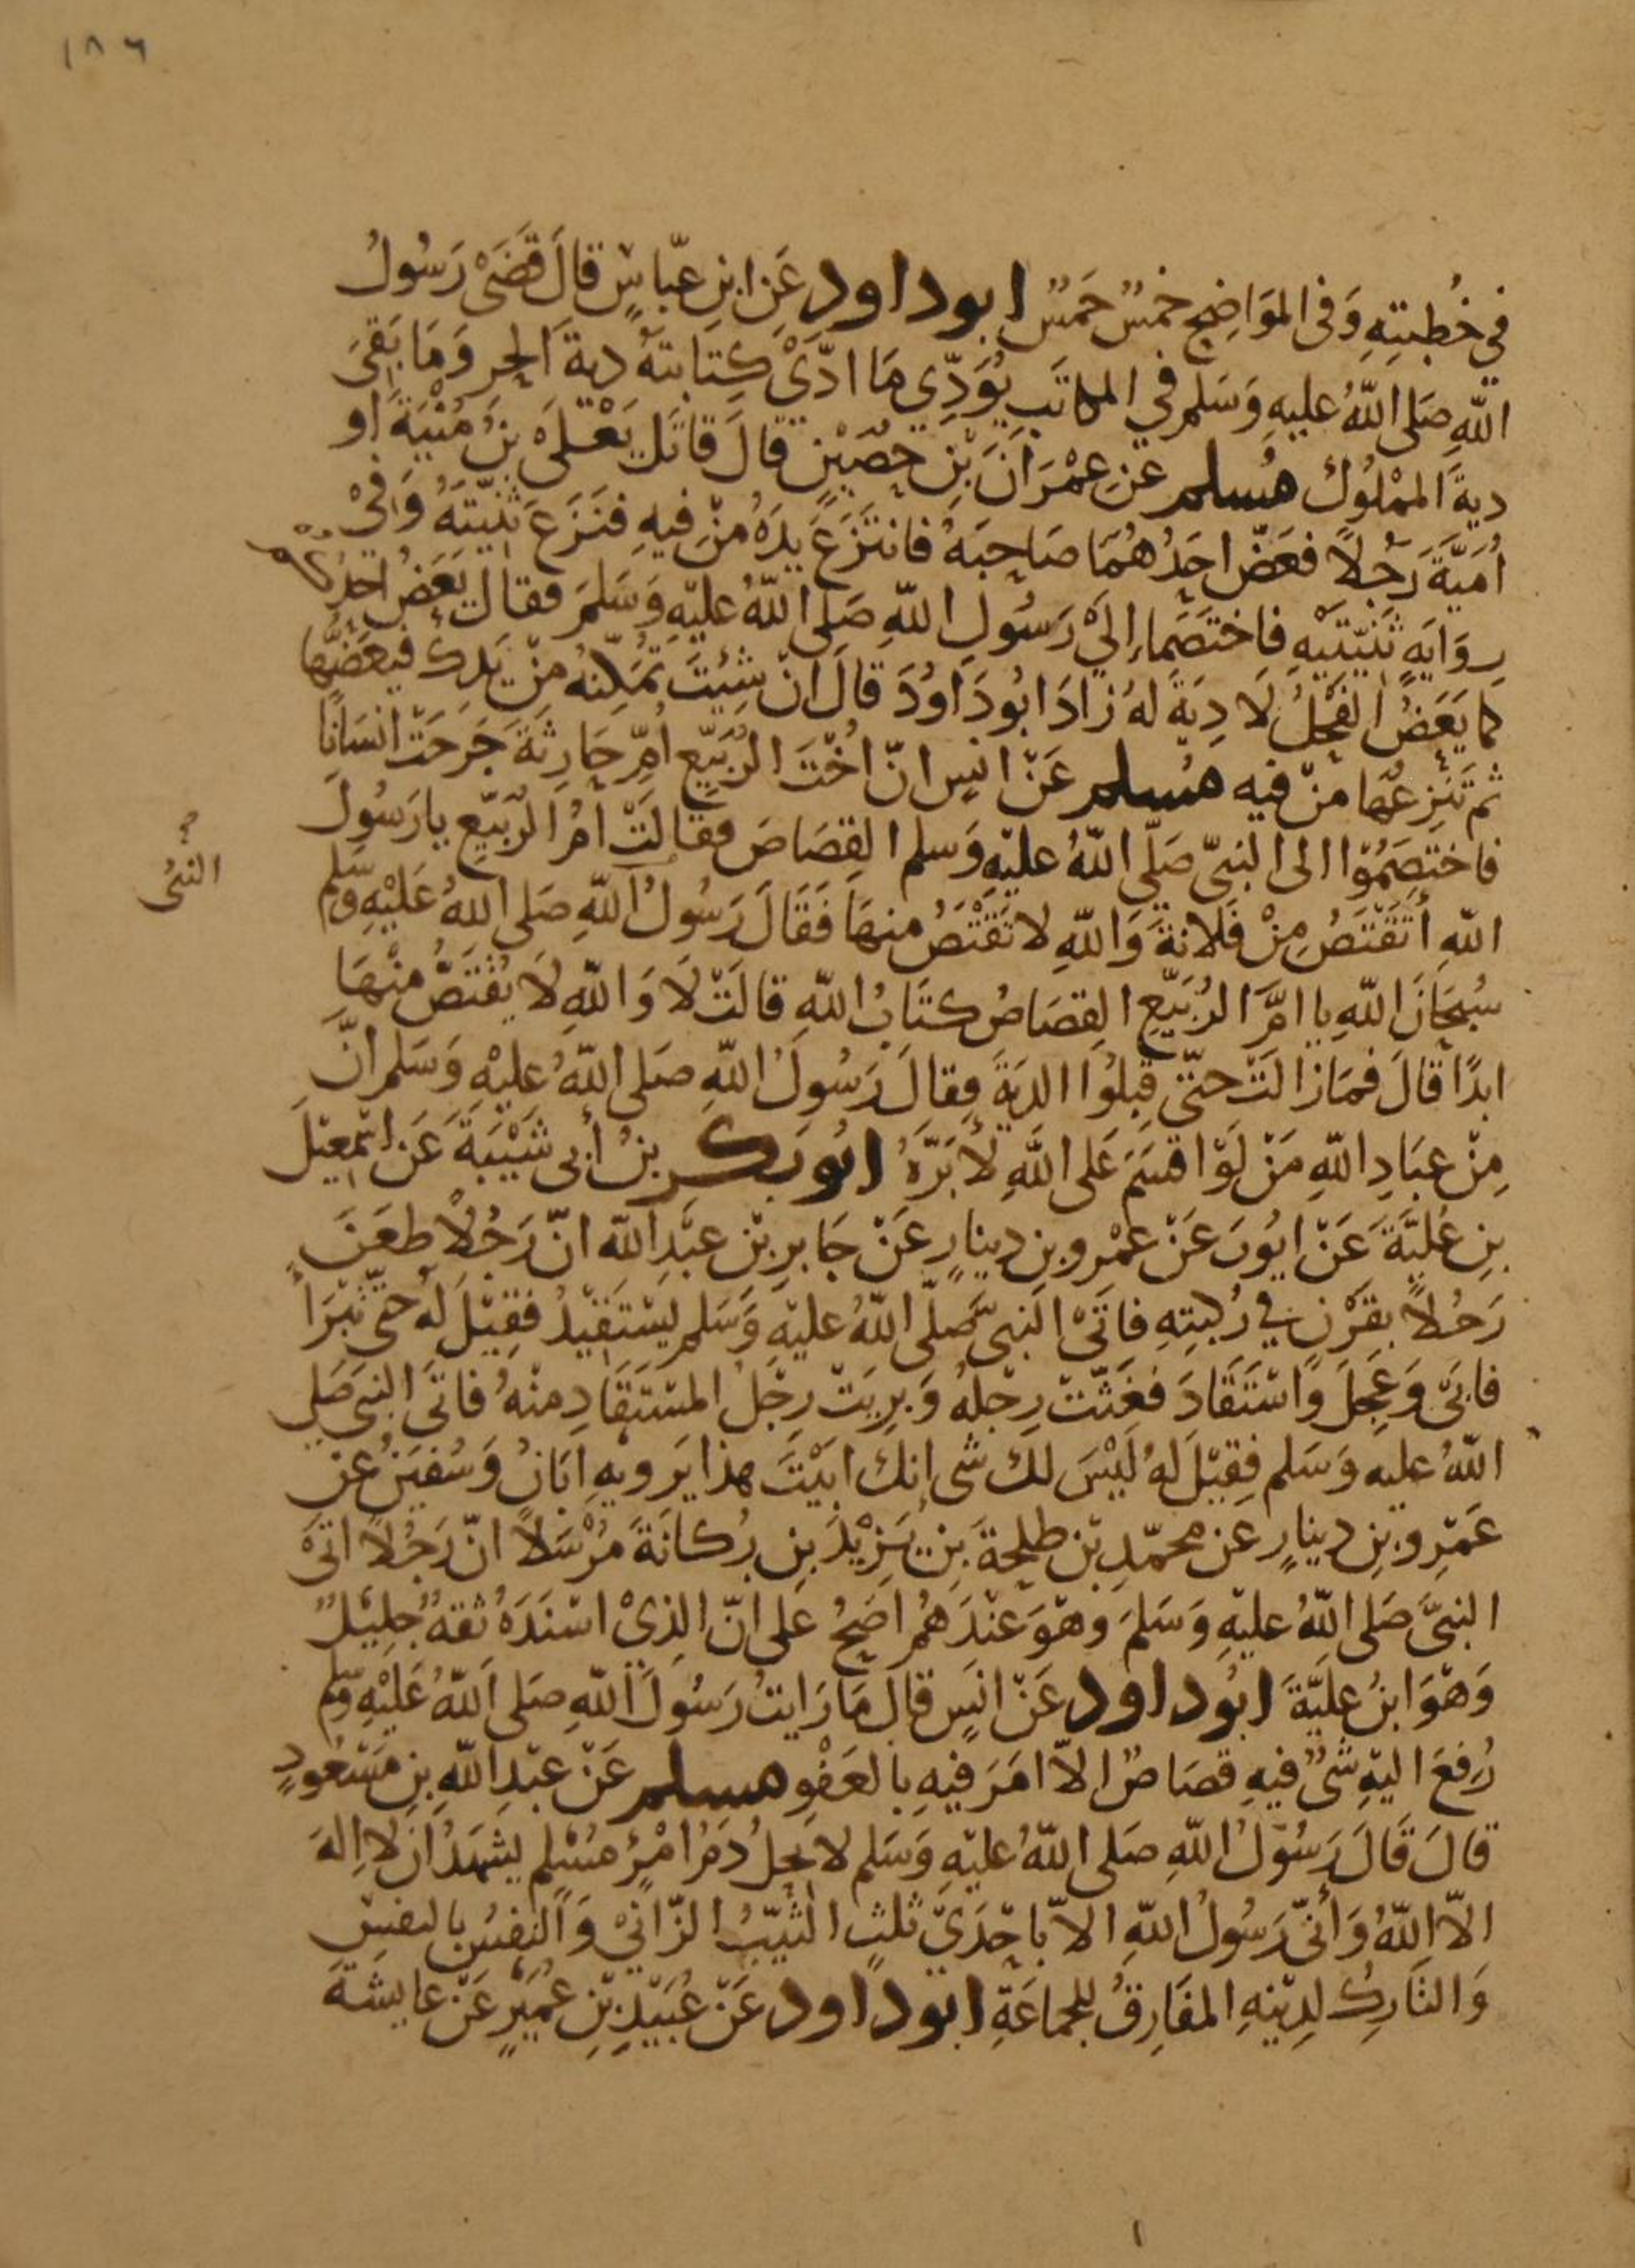 ١٨٦
في خُطبتِهِ وَفى المَوَاضِحِ خمسٌ خمسٌ ابوداود عَنِ ابنِ عبّاسٍ قالَ قَضَىْ رَسُولُ
اللّهِ صَلى اللّهُ عليهِ وَسَلم في المكاتَبِ يُوَدِّي مَا ادّىْ كِتابتهُ ديةَ الحرِ وَمَا بَقِيَ
ديةَ المملُوك مُسلم عَنِ عِمْرَانَ بْنِ حصَيْنٍ قالَ قاتَل يَعْلىَ بنُ مُنْيَةَ او
اُمَيَّةَ رَجُلاً فعَضّ احَدُهُمَا صَاحِبَهُ فانتَزَعَ يدَهُ مِنْ فِيهِ فنَزَعَ ثنِيّتَهُ وَفِيْ
رِوَايَةٍ ثَنيّتَيْهِ فاختَصَما إليْ رَسُولِ اللّهِ صَلى اللّهُ عليْهِ وَسَلمَ فقالَ يَعَضُ احدُكُم
كما يَعَضُ الفَحْلُ لَا دِيَةَ لهُ زادَ ابُودَاوُدَ قالَ انْ شِئتَ تمَكِّنهُ مِنْ يَدِكَ فيَعَضُّهَا
ثم تَنزِعُهَا مِنْ فيه مُسلم عَنْ انَسٍ انّ اُخْتَ الرُبَيّعِ اُمِّ حَارِثَةَ جَرَحَتْ انسَانًا
فاختصَمُوْا الى النبىّ صَلّى اللّهُ عليْهِ وَسلم القِصَاصَ فقالَتْ امُ الرُبَيّعِ يا رَسُولَ
النبىُ
اللّهِ أتُقْتَصُ مِنْ فلانةَ وَاللّهِ لا تقْتَصُ منهَا فَقَالَ رَسُولُ اللّهِ صَلى اللهُ عَلَيْهِ وَسَلم
سُبحَانَ اللّهِ يا امَّ الرُبَيّعِ القِصَاصُ كتَابُ اللّهِ قالَتْ لَا وَاللّهِ لَا يُقْتَصُّ مِنْهَا
ابدًا قالَ فمَازالَتْ حتّى قبِلُوا الديَةَ فقالَ رَسُولُ اللّهِ صَلى اللّهُ عليْهِ وَسَلم انّ
مِنْ عِبَادِ اللّهِ مَنْ لَوْ اقسَمَ عَلى اللّهِ لأبَرّهُ ابُوبَكر بنُ أبى شَيْبَةَ عَن اسْمعِيْلَ
بنِ عُليّةَ عَنْ ايُوبَ عَنْ عَمْرو بنِ دينارٍ عَنْ جَابرِ بْنِ عبْدِ اللّه انّ رَجُلاً طعَنَ
رَجُلاً بقَرْنٍ في رُكبتِهِ فاتَىْ النبىَّ صَلّى اللّهُ عليْهِ وَسَلم يسْتَقِيْدُ فقِيْلَ لهُ حتى تبْرَأ
فابَىْ وَعَجِلَ وَاسْتَقَادَ فعَنَتْ رِجْلهُ وَبرِيَتْ رِجْلُ المسْتَقَادِ مِنْهُ فاتَى النبىَ صَلى
اللّهُ عليهِ وَسَلم فقِيْلَ لهُ لَيْسَ لك شى انك ابَيْتَ هذا يَرويهِ ابَانُ وَسُفيَنُ عَنْ
عَمْرو بنِ دينارٍ عن محمّدِ بْنِ طلحةَ بنِ يَزِيْدَ بنِ رُكانَةَ مُرْسَلاً انّ رَجُلاً اتَىْ
النبىَّ صَلى اللّهُ عليْهِ وَسَلمَ وهْوَ عندَهُم اصَحُ على انّ الذِىْ اسْندَهُ ثقةٌ جلِيْلٌ
وَهْوَ ابنُ عليَّةَ ابُوداود عَنْ انَسٍ قالَ مَا رَايتُ رَسُولَ اللّهِ صَلى اللّهُ عَليْهِ وَسَلم
رُفِعَ اليْهِ شىٌ فيهِ قصَاصٌ الاّ امَرَ فيهِ بالعَفْوِ مسلم عَنْ عبْدِ اللّهِ بنِ مَسْعُودٍ
قالَ قَالَ رَسُولُ اللّهِ صَلى اللّهُ عليْهِ وَسَلم لا يحِلُ دَمُ امْرِئٍ مُسْلمٍ يشهَدُ ان لا الهَ
الاّ اللّهُ وَأنّى رَسُولُ اللّهِ الاّ باحْدَىْ ثلثٍ الثيّبُ الزّانيْ وَالنفسُ بالنفسِ
وَالتَارِكُ لدِيْنِهِ المفَارِقُ للجماعَةِ ابوداود عَنْ عُبَيْدِ بْنِ عُمَيْرٍ عَنْ عايشَةَ